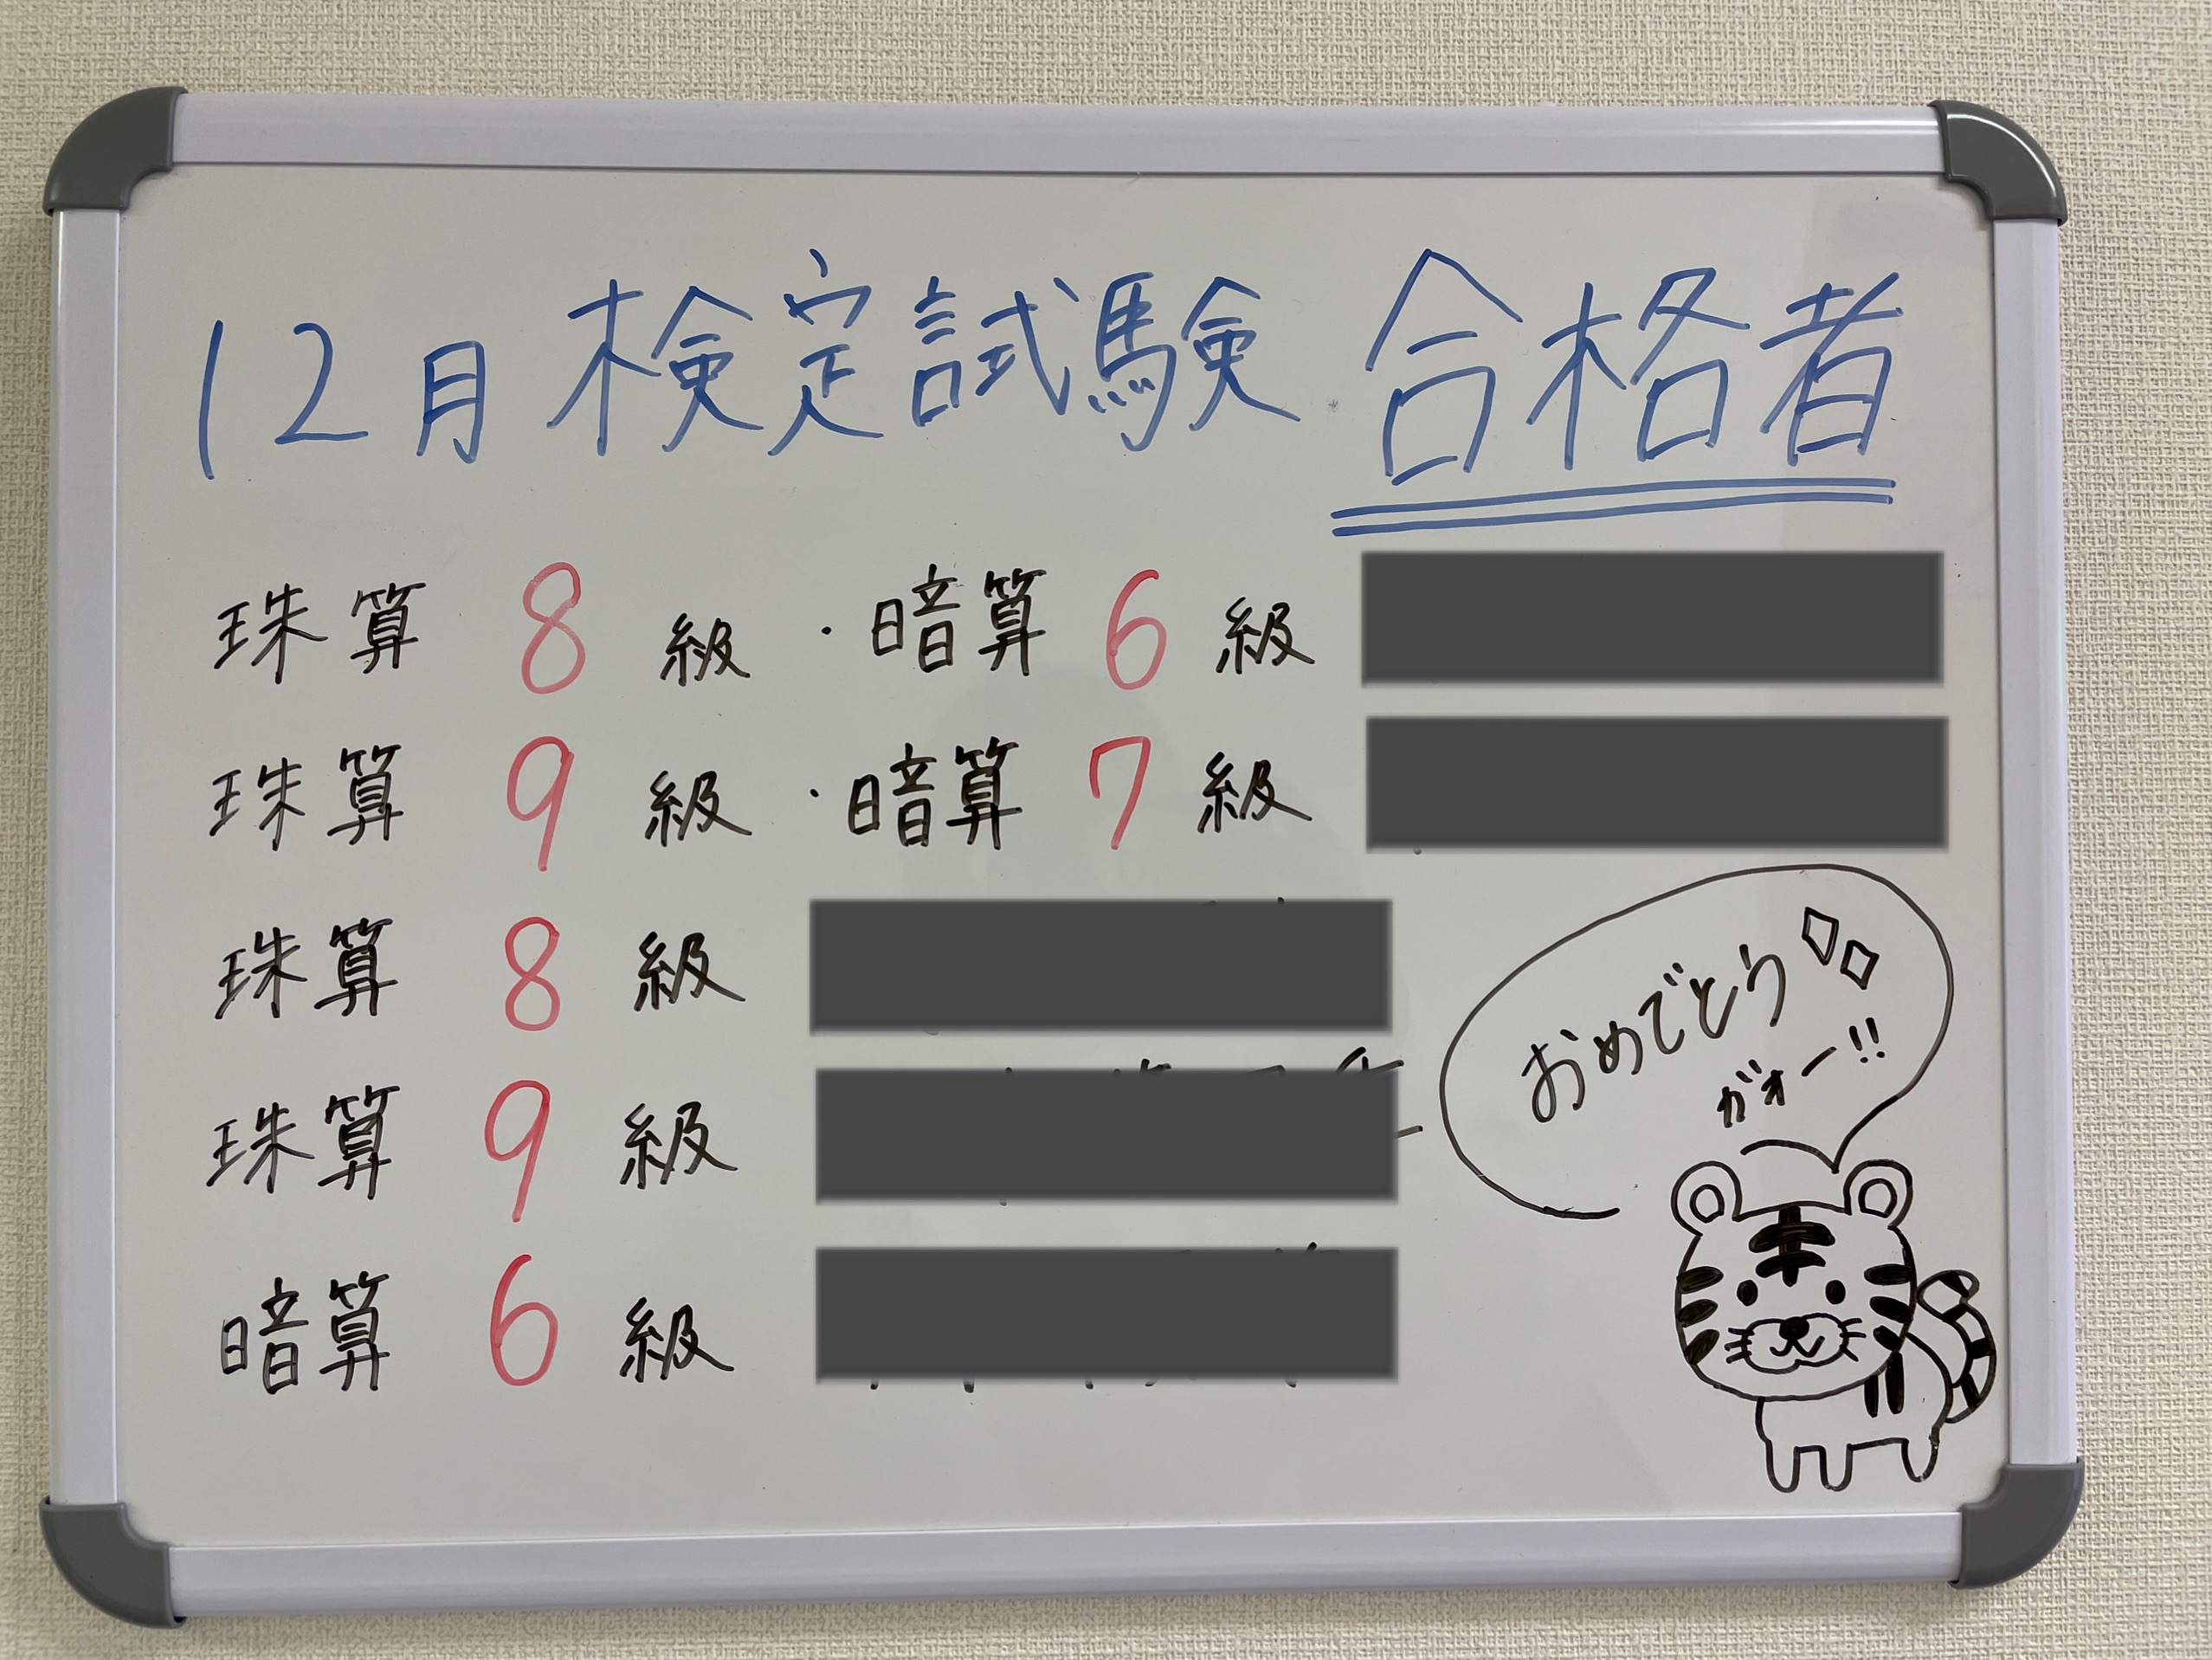 12月検定試験 合格者
珠算 8 級 ・暗算 6 級
珠算 9 級 ・暗算 7 級
珠算 8 級
珠算 9 級
暗算 6 級
おめでとう
ガオー!!